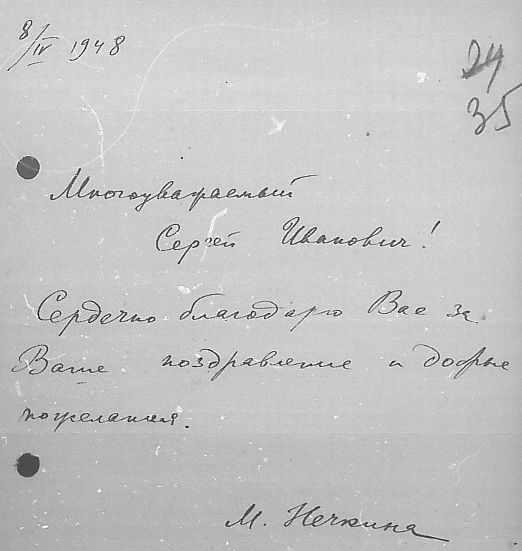 8/IV 1948
24
35
Многоуважаемый
Сергей Иванович!
Сердечно благодарю Вас за
Ваше поздравление и добрые
пожелания.
М. Нечкина